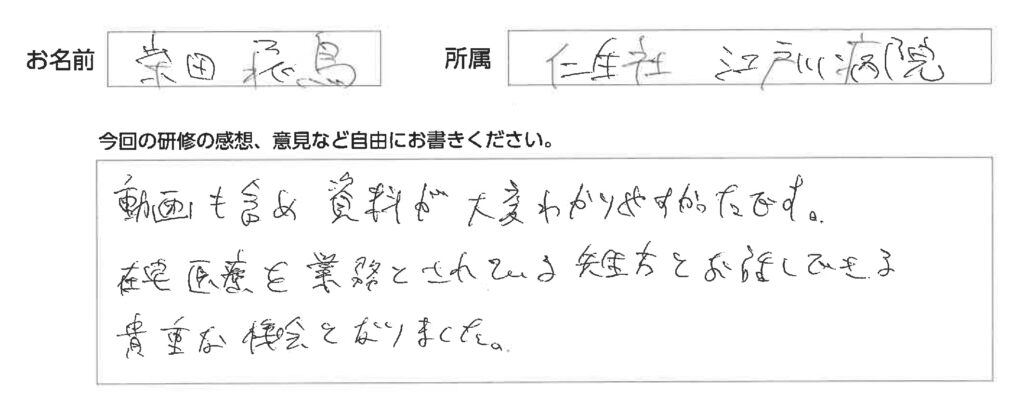 お名前 柴田 飛鳥 所属 仁生社 江戸川病院
今回の研修の感想、意見など自由にお書きください。
動画も含め 資料が 大変わかりやすかったです。
在宅医療を業務とされている先生方とお話しできる
貴重な機会となりました。